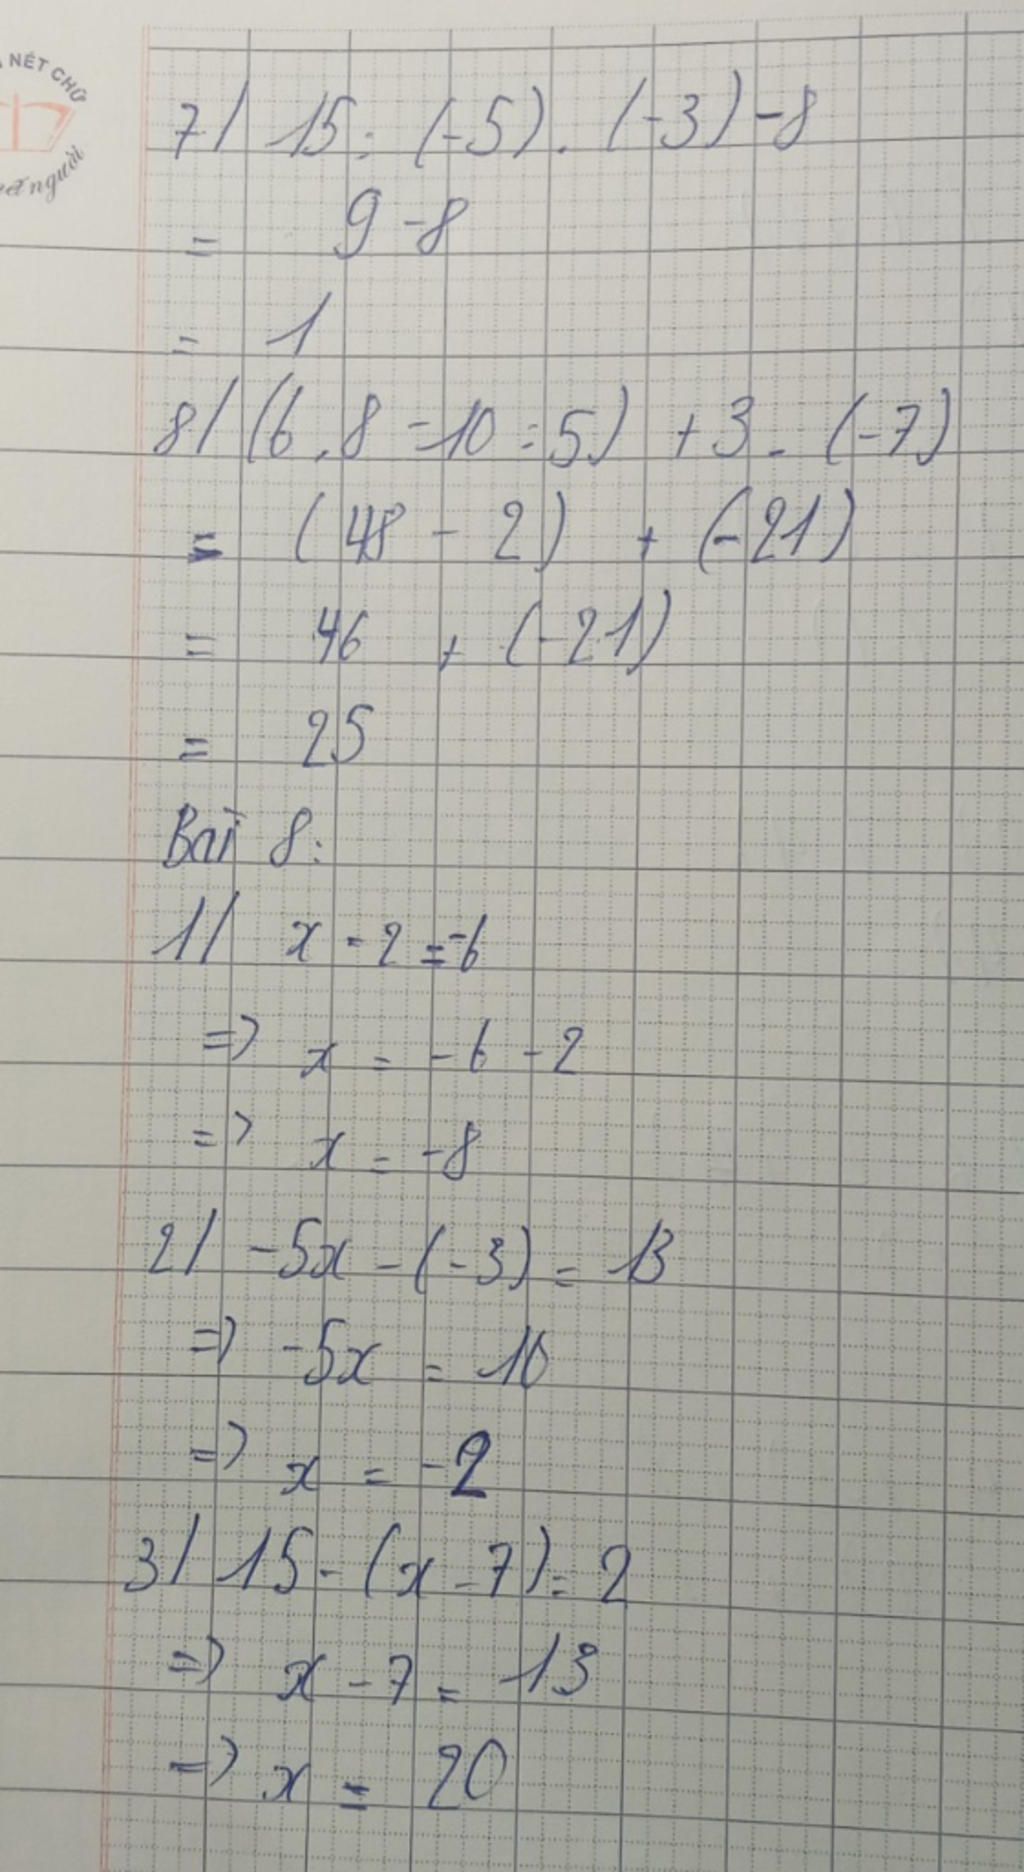 NÉT CHỮ
người
7/ 15 : (-5) . (-3) - 8
= 9 - 8
= 1
8/ (6 . 8 - 10 : 5) + 3 . (-7)
= (48 - 2) + (-21)
= 46 + (-21)
= 25
Bài 8:
1/ x - 2 = -6
=> x = -6 - 2
=> x = -8
2/ -5x - (-3) = 13
=> -5x = 10
=> x = -2
3/ 15 - (x - 7) = 2
=> x - 7 = 13
=> x = 20